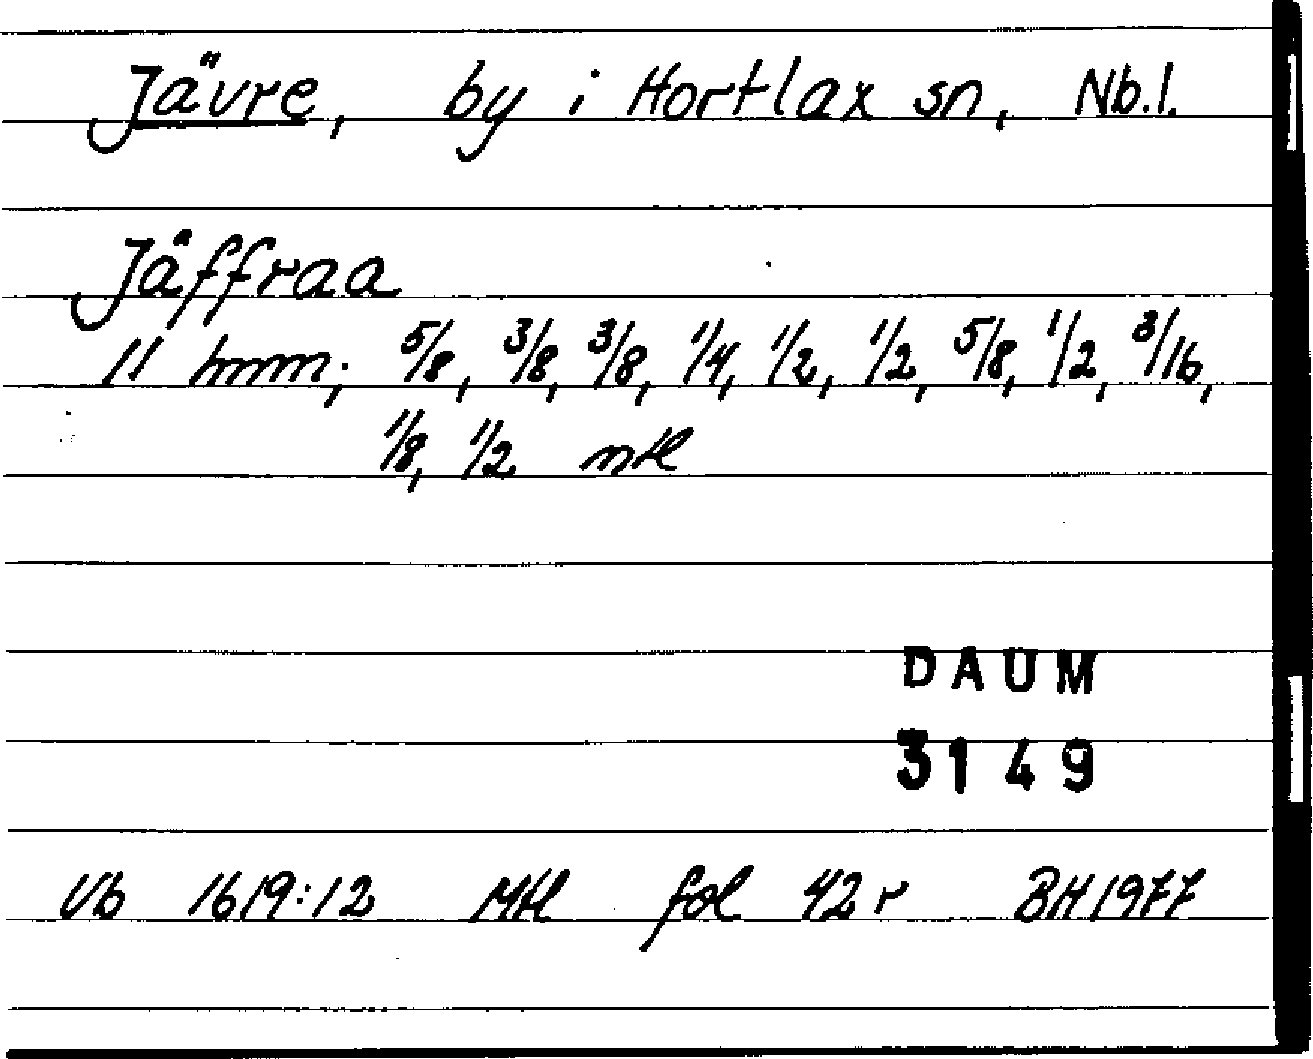 Jävre, by i Hortlax sn, Nb.l.
Jäffraa
11 hmm; 5/8, 3/8, 3/8, 1/4, 1/2, 1/2, 5/8, 1/2, 3/16,
1/8, 1/2 mtl
DAUM
3149
Vb 1619:12 Mtl fol 42 r BH 1977